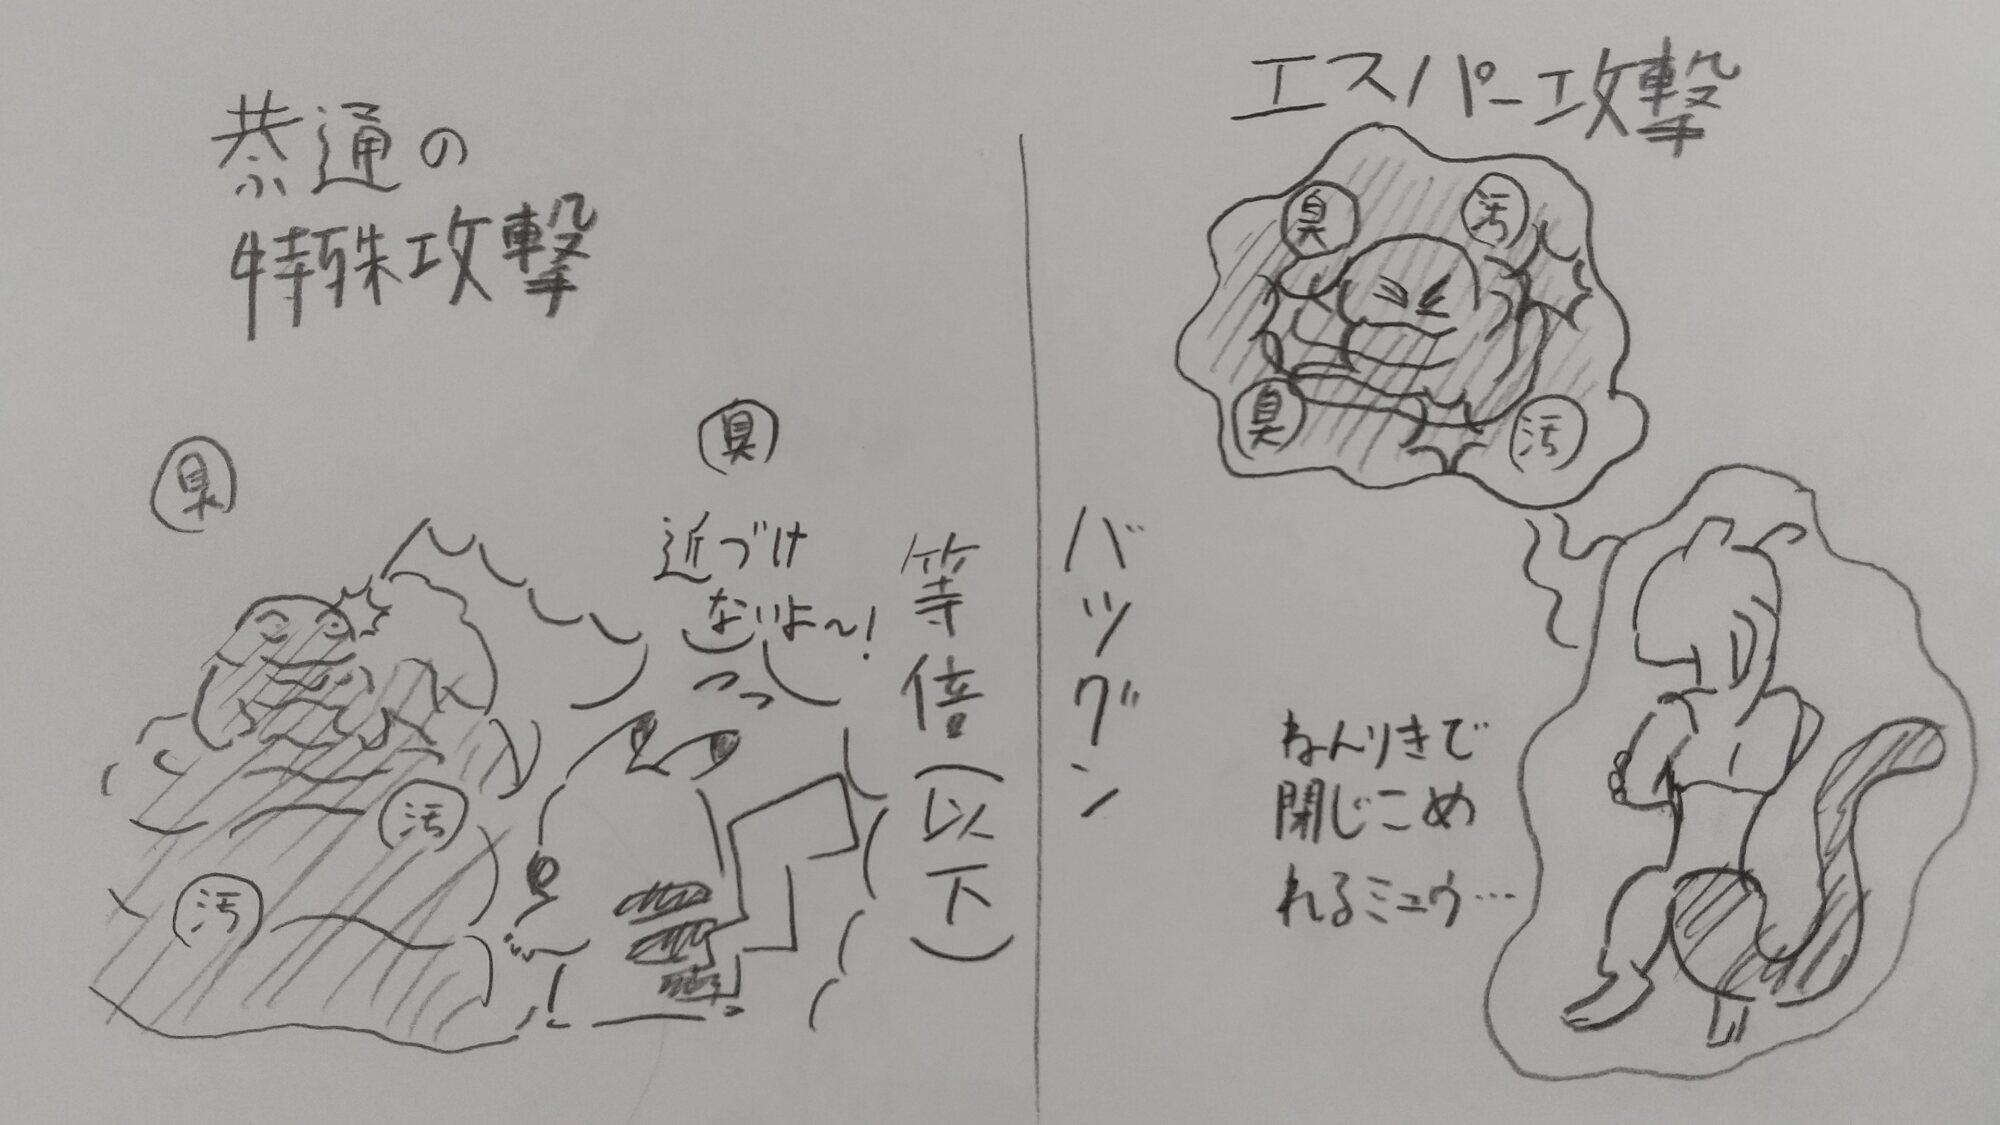 恭通の
特殊攻撃
臭
臭
近づけ
ないよ～!
汚
汚
等倍(以下)
バツグン
エスパー攻撃
臭
汚
臭
汚
ねんりきで
閉じこめ
れるミュウ…